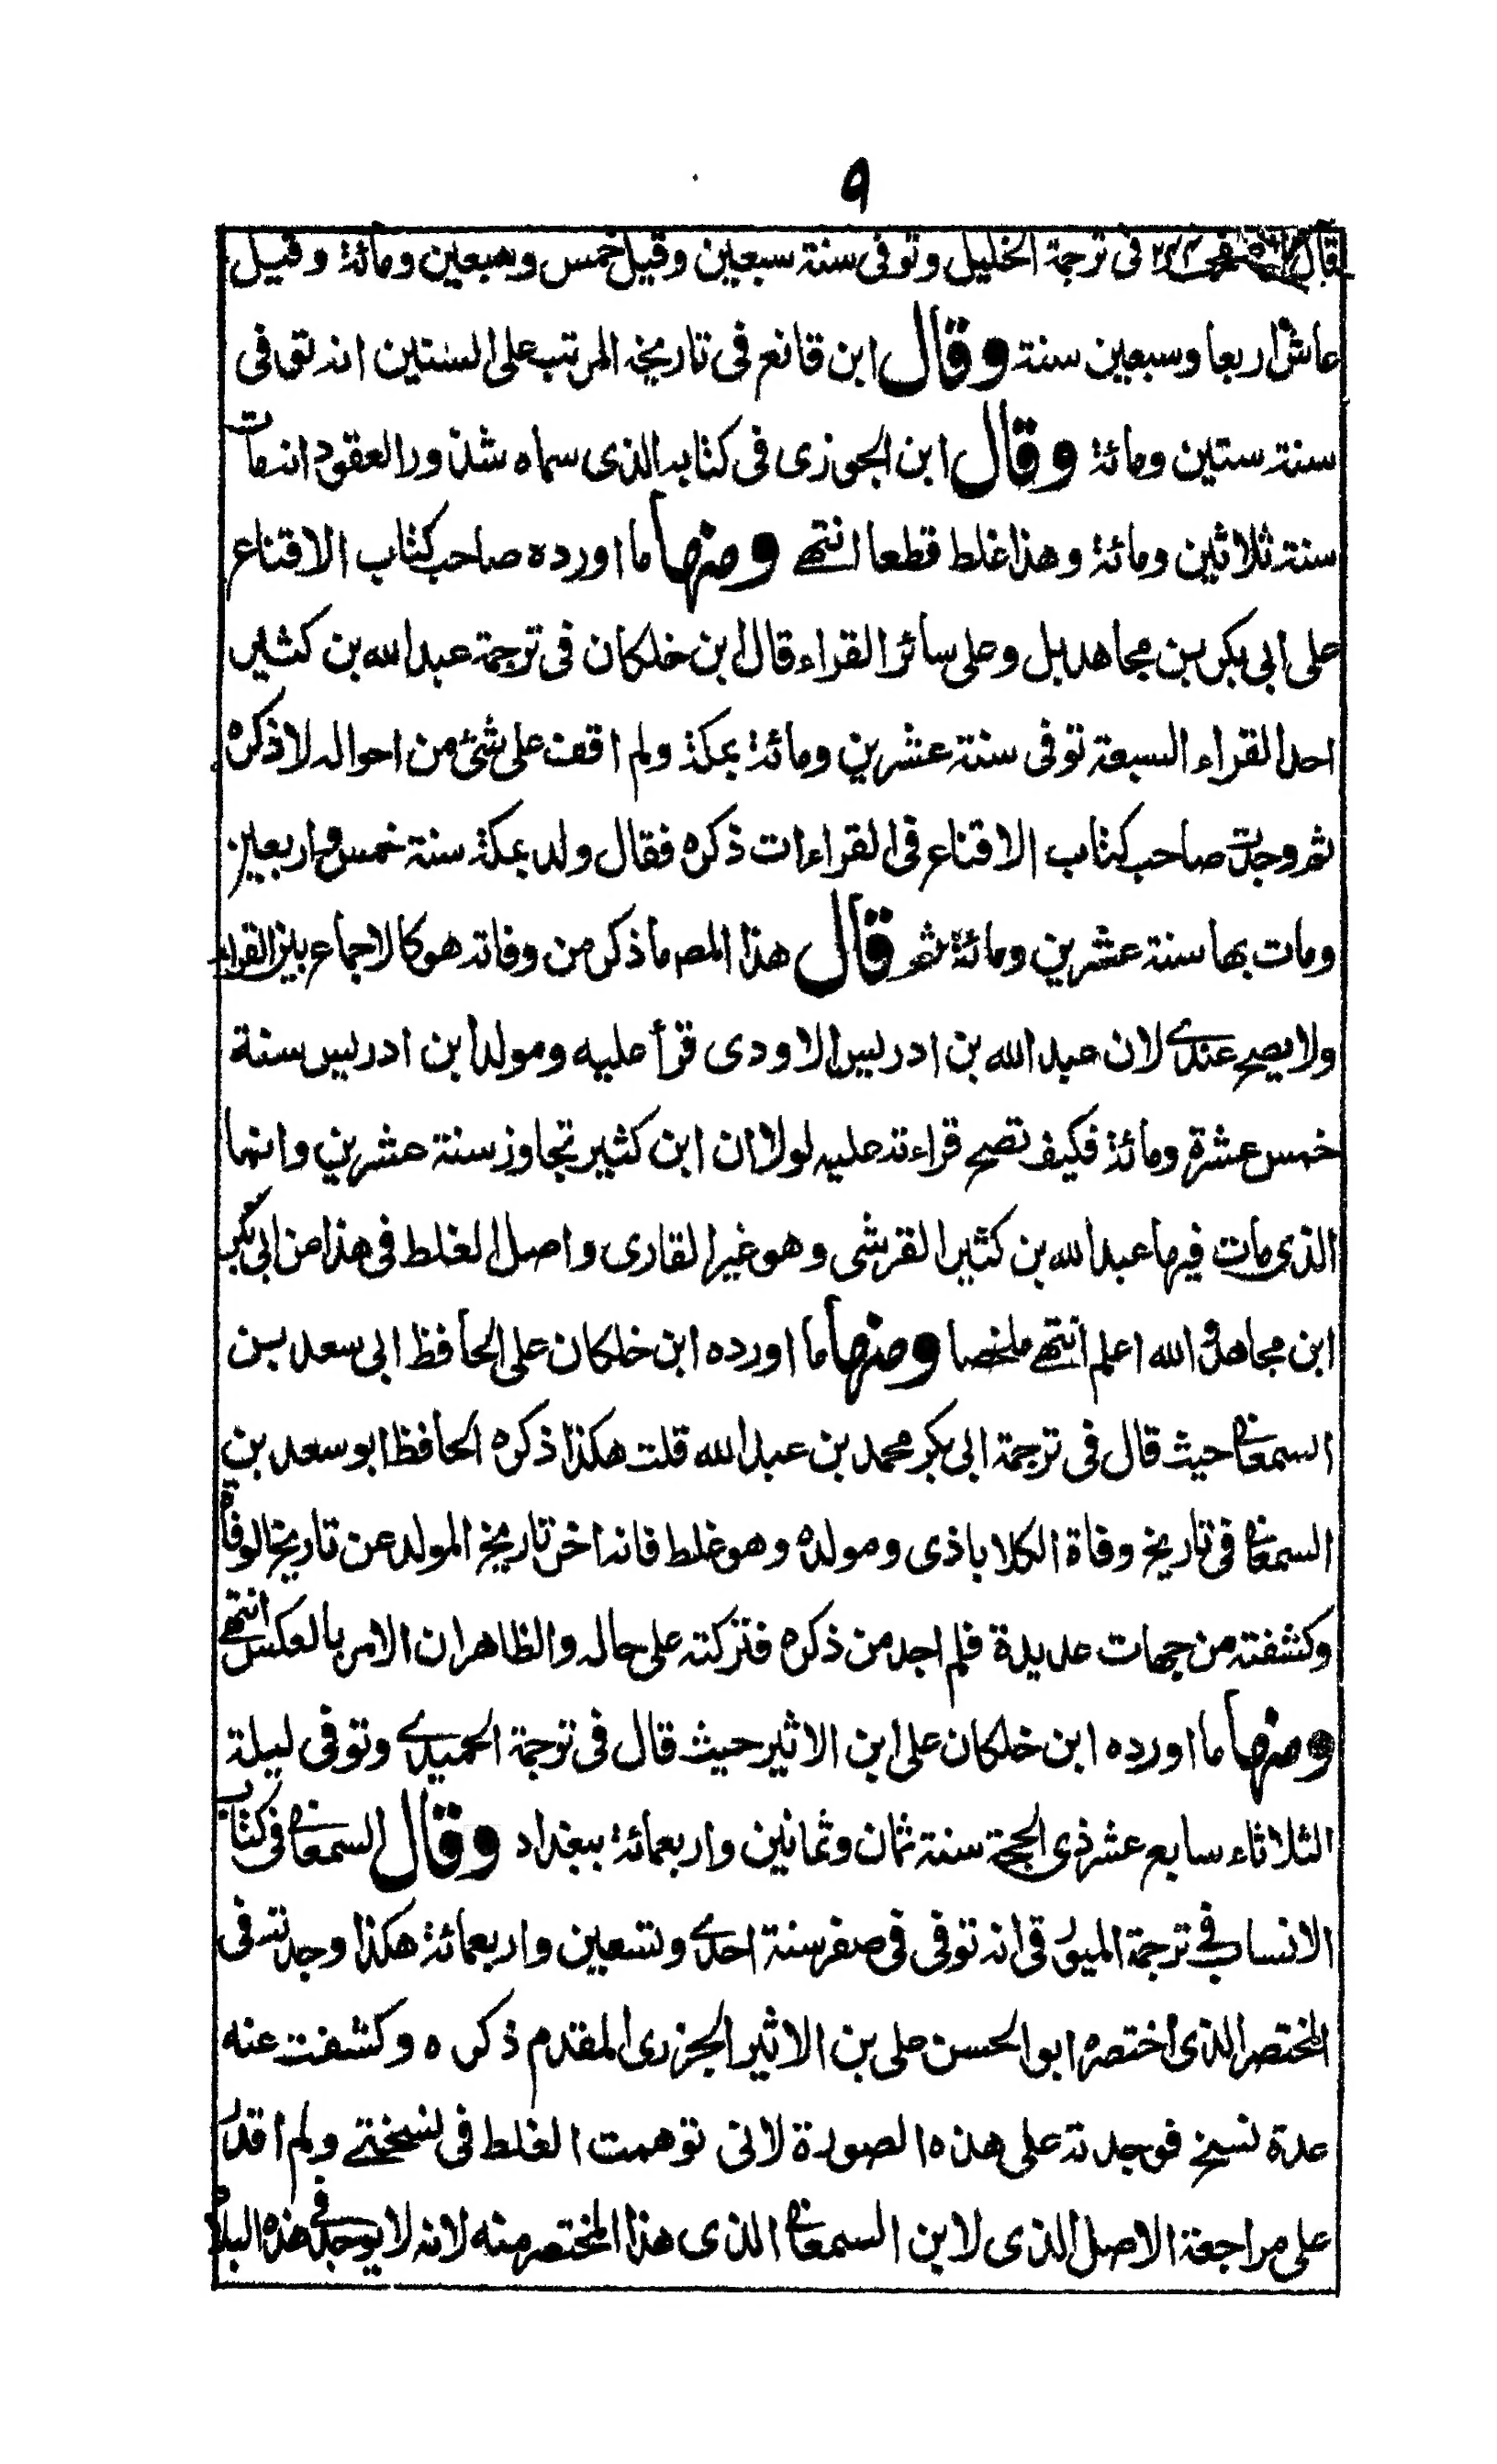 ٩
قال فى ترجمة الخليل وتوفى سنة سبعين وقيل خمس وسبعين ومائة وقيل
عاش اربعا وسبعين سنة وقال ابن قانع فى تاريخه المرتب على السنين انه توفى
سنة ستين ومائة وقال ابن الجوزى فى كتابه الذى سماه شذور العقود انه مات
سنة ثلاثين ومائة وهذا غلط قطعا انتهى ومنها ما اورده صاحب كتاب الاقناع
على ابى بكر بن مجاهد بل وعلى سائر القراء قال ابن خلكان فى ترجمة عبد الله بن كثير
احد القراء السبعة توفى سنة عشرين ومائة بمكة ولم اقف على شئ من احواله لاذكره
ثم وجدت صاحب كتاب الاقناع فى القراءات ذكره فقال ولد بمكة سنة خمس واربعين
ومات بها سنة عشرين ومائة ثم قال هذا المصـ ما ذكر من وفاته هو كالاجماع بين القراء
ولا يصح عندى لان عبد الله بن ادريس الاودى قرأ عليه ومولد ابن ادريس سنة
خمس عشرة ومائة فكيف تصح قراءته عليه لولا ان ابن كثير تجاوز سنة عشرين وانما
الذى مات فيها عبد الله بن كثير القرشى وهو غير القارى واصل الغلط فى هذا من ابى بكر
ابن مجاهد والله اعلم انتهى ملخصا ومنها ما اورده ابن خلكان على الحافظ ابى سعد بن
السمعانى حيث قال فى ترجمة ابى بكر محمد بن عبد الله قلت هكذا ذكره الحافظ ابو سعد بن
السمعانى فى تاريخ وفاة الكلاباذى ومولده وهو غلط فانه اخر تاريخ المولد عن تاريخ الوفاة
وكشفته من جهات عديدة فلم اجد من ذكره فتركته على حاله والظاهر ان الامر بالعكس انتهى
ومنها ما اورده ابن خلكان على ابن الاثير حيث قال فى ترجمة الحميدى وتوفى ليلة
الثلاثاء سابع عشر ذى الحجة سنة ثمان وثمانين واربعمائة ببغداد وقال السمعانى فى كتاب
الانساب فى ترجمة الميورقى انه توفى فى صفر سنة احدى وتسعين واربعمائة هكذا وجدته فى
المختصر الذى اختصره ابو الحسن على بن الاثير الجزرى المقدم ذكره وكشفت عنه
عدة نسخ فوجدته على هذه الصورة لانى توهمت الغلط فى نسختى ولم اقدر
على مراجعة الاصل الذى لابن السمعانى الذى هذا المختصر منه لانه لا يوجد فى هذه البلاد